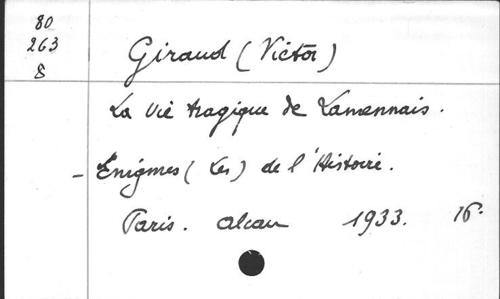 80
263
8
Giraud (Victor)
La vie tragique de Lamennais.
- Enigmes (Les) de l'Histoire.
Paris. Alcan 1933. 16°.